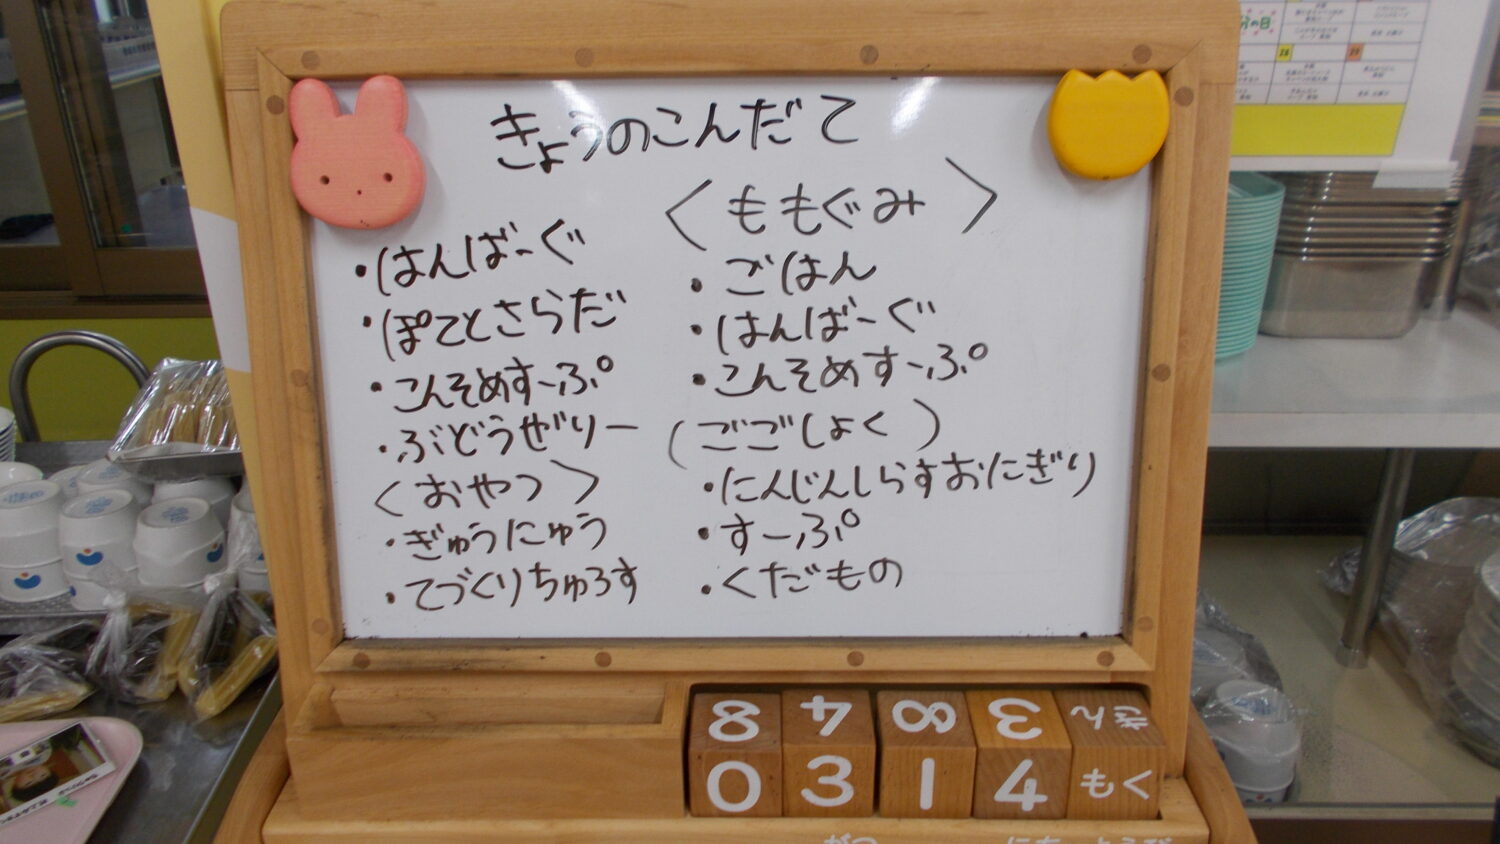 きょうのこんだて
・はんばーぐ
・ぽてとさらだ
・こんそめすーぷ
・ぶどうぜりー
〈おやつ〉
・ぎゅうにゅう
・てづくりちゅろす
〈ももぐみ〉
・ごはん
・はんばーぐ
・こんそめすーぷ
(ごごしょく)
・にんじんしらすおにぎり
・すーぷ
・くだもの
8 4 8 3 きん
0 3 1 4 もく